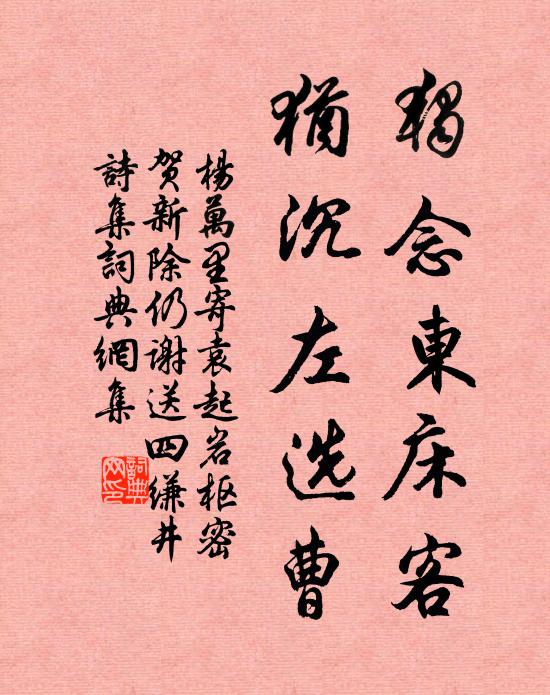 独念東床客
猶沉左选曹
楊萬里寄袁起岩枢密
贺新除仍谢送四縑井
詩集詞典網集
詞典
网印